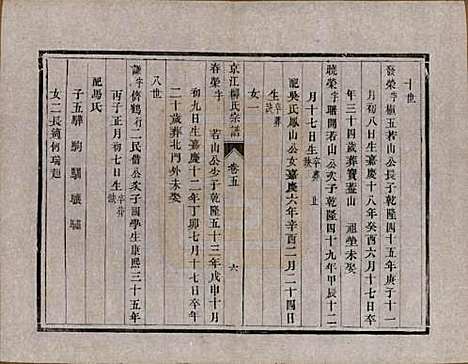 十世
發榮字椒五若山公長子乾隆四十五年庚子十一
月初八日生嘉慶十八年癸酉六月十七日卒
年三十四歲葬寶蓋山祖塋未娶
曉榮字珊開若山公次子乾隆四十九年甲辰十二
月十七日生卒葬
配吳氏鳳山公女嘉慶六年辛酉二月二十四日
生卒葬缺
女一
京江柳氏宗譜 卷五 六
春榮字 若山公少子乾隆五十三年戊申十月
初九日生嘉慶十二年丁卯七月十七日卒年
二十歲葬北門外未娶
八世
謙字儕鶴行二民借公次子國學生康熙三十五年
丙子正月初七日生卒葬缺
配馬氏
子五驊 駒 驥
女二長適何瑞起